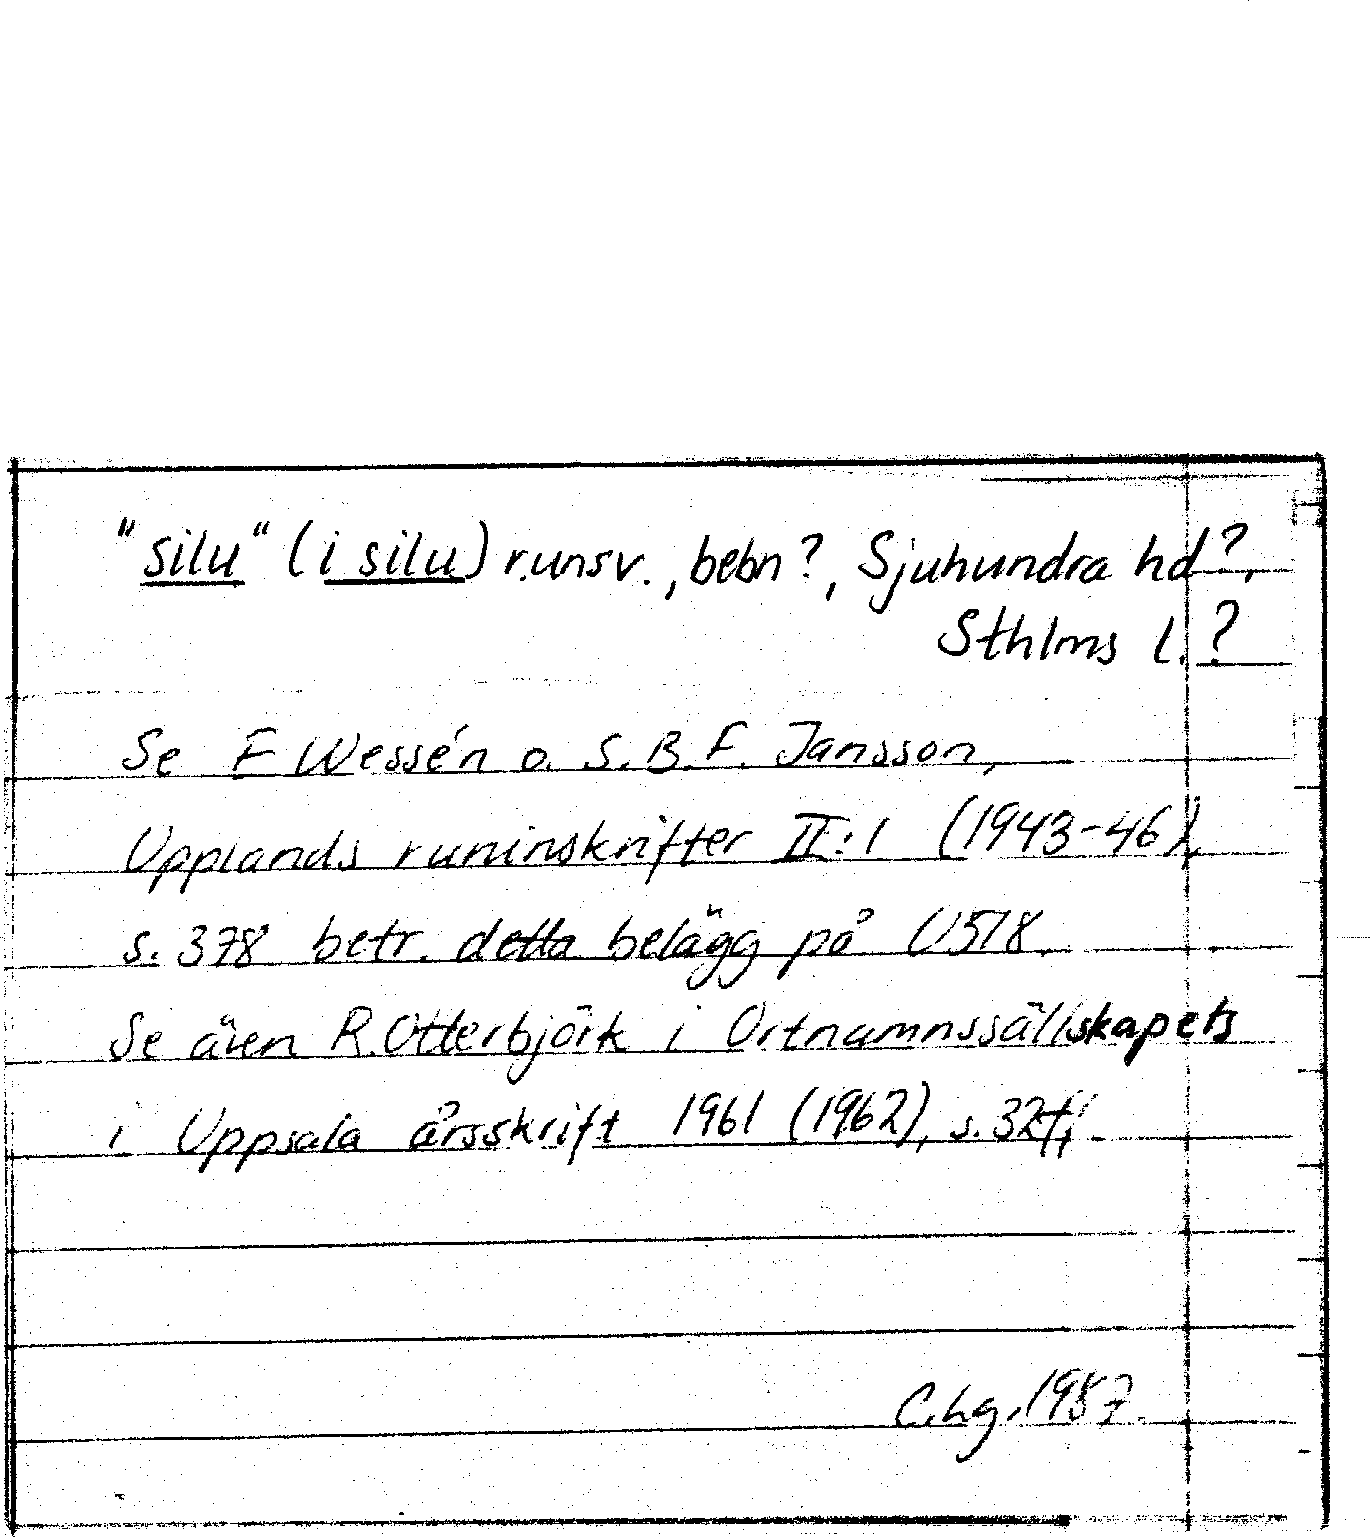 "silu" (i silu) runsv., bebn?, Sjuhundra hd?,
Sthlms l.?
Se E Wessén o. S.B.F. Jansson,
Upplands runinskrifter II:1 (1943-46),
s. 378 betr. detta belägg på U518.
Se även R. Otterbjörk i Ortnamnssällskapets
i Uppsala årsskrift 1961 (1962), s. 32ff.
C.hg. 1987